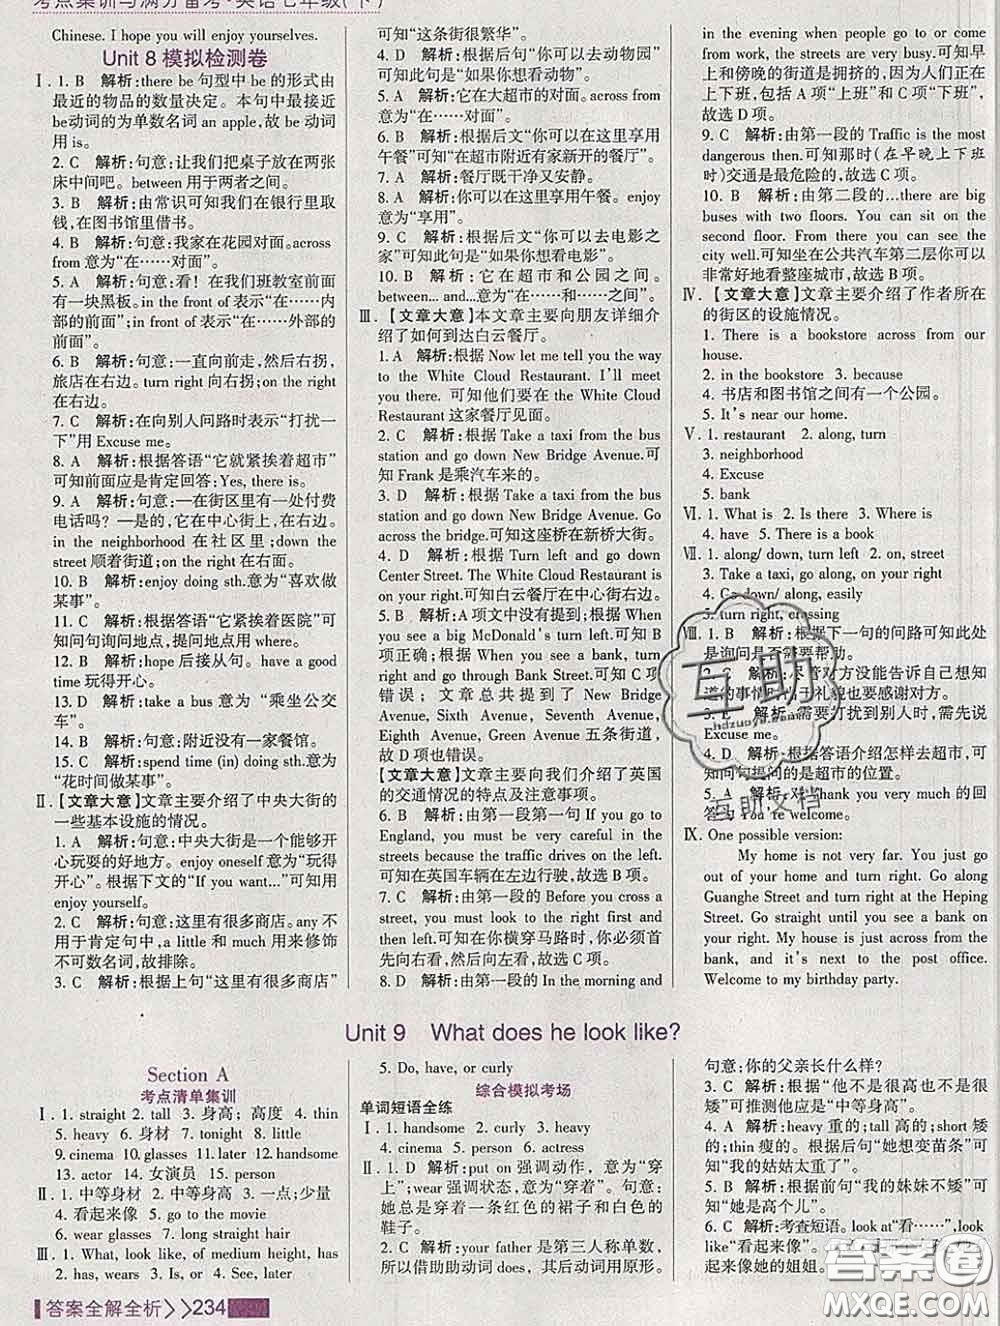 考点集训与满分备考·英语七年级(下)
Chinese. I hope you will enjoy yourselves.
Unit 8 模拟检测卷
Ⅰ. 1. B 解析:there be 句型中 be 的形式由
最近的物品的数量决定。本句中最接近
be动词的为单数名词 an apple,故 be 动词
用 is。
2. C 解析:句意:让我们把桌子放在两张
床中间吧。between 用于两者之间。
3. B 解析:由常识可知我们在银行里取
钱,在图书馆里借书。
4. B 解析:句意:我家在花园对面。across
from 意为“在……对面”。
5. A 解析:句意:看！在我们班教室前面
有一块黑板。in the front of 表示“在……内
部的前面”;in front of 表示“在……外部的
前面”。
6. B 解析:句意:一直向前走,然后右拐,
旅店在右边。turn right 向右拐;on the right
在右边。
7. C 解析:在向别人问路时表示“打扰一
下”用 Excuse me。
8. A 解析:根据答语“它就紧挨着超市”
可知前面应是肯定回答:Yes, there is.
9. A 解析:句意:—在街区里有一处付费
电话吗？—是的,它在中心街上,在右边。
in the neighborhood 在社区里;down the
street 顺着街道;on the right 在右面。
10. B 解析:enjoy doing sth.意为“喜欢做
某事”。
11. C 解析:根据答语“它紧挨着医院”可
知问句询问地点,提问地点用 where。
12. B 解析:hope 后接从句。have a good
time 玩得开心。
13. D 解析:take a bus 意为“乘坐公交
车”。
14. B 解析:句意:附近没有一家餐馆。
15. A 解析:spend time (in) doing sth.意为
“花时间做某事”。
Ⅱ.【文章大意】文章主要介绍了中央大街的
一些基本设施的情况。
1. A 解析:句意:中央大街是一个能够开
心玩耍的好地方。enjoy oneself 意为“玩得
开心”。根据下文的“If you want...”可知用
enjoy yourself。
2. C 解析:句意:这里有很多商店。any 不
用于肯定句中,a little 和 much 用来修饰
不可数名词,故排除。
3. C 解析:根据上句“这里有很多商店”
可知“这条街很繁华”。
4. C 解析:根据后句“你可以去动物园”
可知此句是“如果你想看动物”。
5. A 解析:它在大超市的对面。across from
意为“在……对面”。
6. B 解析:根据后文“你可以在这里享用
午餐”可知“在超市附近有家新开的餐厅”。
7. A 解析:餐厅既干净又安静。
8. A 解析:你可以在这里享用午餐。enjoy
意为“享用”。
9. C 解析:根据后文“你可以去电影之
家”可知此句是“如果你想看电影”。
10. B 解析:它在超市和公园之间。
between...and...意为“在……和……之间”。
Ⅲ.【文章大意】本文主要向朋友详细介
绍了如何到达白云餐厅。
1. A 解析:根据 Now let me tell you the way
to the White Cloud Restaurant. I'll meet
you there. 可知他们要在 the White Cloud
Restaurant 这家餐厅见面。
2. C 解析:根据 Take a taxi from the bus
station and go down New Bridge Avenue.可
知 Frank 是乘汽车来的。
3. D 解析:根据 Take a taxi from the bus
station and go down New Bridge Avenue. Go
across the bridge.可知这座桥在新桥大街。
4. D 解析:根据 Turn left and go down
Center Street. The White Cloud Restaurant is
on your right.可知白云餐厅在中心街右边。
5. B 解析:A 项文中没有提到;根据 When
you see a big McDonald's turn left.可知 B
项正确;根据 When you see a bank, turn left
and go through Bank Street.可知 C 项
错误; 文章总共提到了 New Bridge
Avenue, Sixth Avenue, Seventh Avenue,
Eighth Avenue, Green Avenue 五条街道,
故 D 项也错误。
【文章大意】文章主要向我们介绍了英国
的交通情况的特点及注意事项。
6. B 解析:由第一段第一句 If you go to
England, you must be very careful in the
streets because the traffic drives on the left.
可知在英国车辆在左边行驶,故选 B 项。
7. C 解析:由第一段的 Before you cross a
street, you must look to the right first and
then left.可知在你横穿马路时,你必须首
先向右看,然后再向左看,故选 C 项。
8. D 解析:由第一段的 In the morning and
in the evening when people go to or come
from work, the streets are very busy.可知早
上和傍晚的街道是拥挤的,因为人们上
下班,包括 A 项“上班”和 C 项“下班”,
故选 D 项。
9. C 解析:由第一段的 Traffic is the most
dangerous then.可知那时(在早晚上下班
时)交通是最危险的,故选 C 项。
10. B 解析:由第二段的...there are big
buses with two floors. You can sit on the
second floor. From there you can see the
city well.可知坐在公共汽车第二层你可以
非常好地看整座城市,故选 B 项。
Ⅳ.【文章大意】文章主要介绍了作者所在
的街区的设施情况。
1. There is a bookstore across from our
house.
2. in the bookstore 3. because
4. 书店和图书馆之间有一个公园。
5. It's near our home.
Ⅴ. 1. restaurant 2. along, turn
3. neighborhood
4. Excuse
5. bank
Ⅵ. 1. What is 2. Is there 3. Where is
4. have 5. There is a book
Ⅶ. 1. along/ down, turn left 2. on, street
3. Take a taxi, go along, on your right
4. Go down/ along, easily
5. turn right, crossing
Ⅷ. 1. B 解析:根据下一句的问路可知此处
是询问是否需要帮助。
2. C 解析:尽管对方没能告诉自己想知
道的事情,出于礼貌也要感谢对方。
3. E 解析:需要打扰到别人时,需先说
Excuse me。
4. D 解析:根据答语介绍怎样去超市,可
知问句提问的是超市的位置。
5. A 解析:对 Thank you very much 的回
答为 You're welcome。
Ⅸ. One possible version:
My home is not very far. You just go
out of my home and turn right. Go along
Guanghe Street and turn right at the Heping
Street. Go straight until you see a bank on
your right. My house is just across from the
bank, and it's next to the post office.
Welcome to my birthday party.
Unit 9 What does he look like?
Section A
考点清单集训
Ⅰ. 1. straight 2. tall 3. 身高; 高度 4. thin
5. heavy 6. 身材 7. tonight 8. little
9. cinema 10. glasses 11. later 12. handsome
13. actor 14. 女演员 15. person
Ⅱ. 1. 中等身材 2. 中等身高 3. 一点;少量
4. 看起来像 5. go to the movie
6. wear glasses 7. long straight hair
Ⅲ. 1. What, look like, of medium height, has
2. has, wears 3. Is, or 4. See, later
5. Do, have, or curly
综合模拟考场
单词短语全练
Ⅰ. 1. handsome 2. curly 3. heavy
4. cinema 5. person 6. actress
Ⅱ. 1. D 解析:put on 强调动作, 意为“穿
上”;wear 强调状态,意为“穿着”。句意:
她总是穿着一条红色的裙子和白色的
鞋子。
2. C 解析:your father 是第三人称单数,
所以借助助动词 does,其后动词用原形。
句意:你的父亲长什么样？
3. C 解析:根据“他不是很高也不是很
矮”可推测他应是“中等身高”。
4. A 解析:heavy 重的;tall 高的;short 矮
的;thin 瘦的。根据后句“她想变苗条”可
知“我的姑姑太重了”。
5. B 解析:根据前句“我的妹妹不矮”可
知“她是高个儿”。
6. C 解析:考查短语。look at“看……”,look
like“看起来像”。
起来像她的姐姐。
答案全解全析>>234
互助
hdzuoye.com
互助文档
答案圈
MXQE.COM